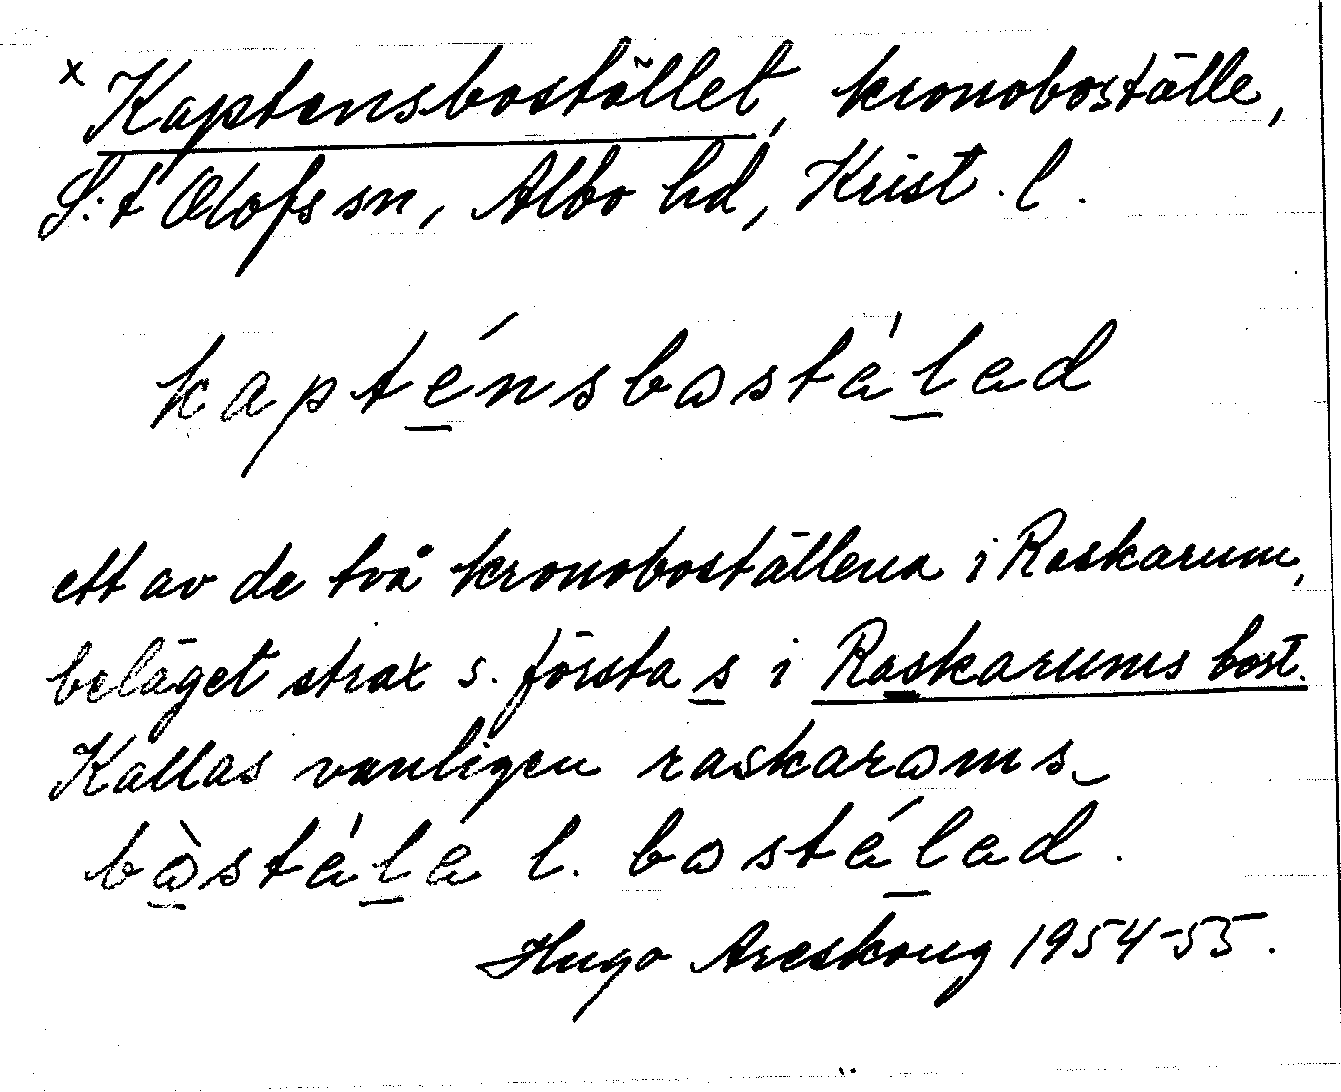 x Kaptensbostället, kronoboställe,
S:t Olofs sn, Albo hd, Krist. l.
kapténsbɷstálad
ett av de två kronoboställena i Raskarum,
beläget strax s. första s i Raskarums bost.
Kallas vanligen raskarɷms-
bɷ̀stála l. bɷstálad.
Hugo Areskoug 1954-55.